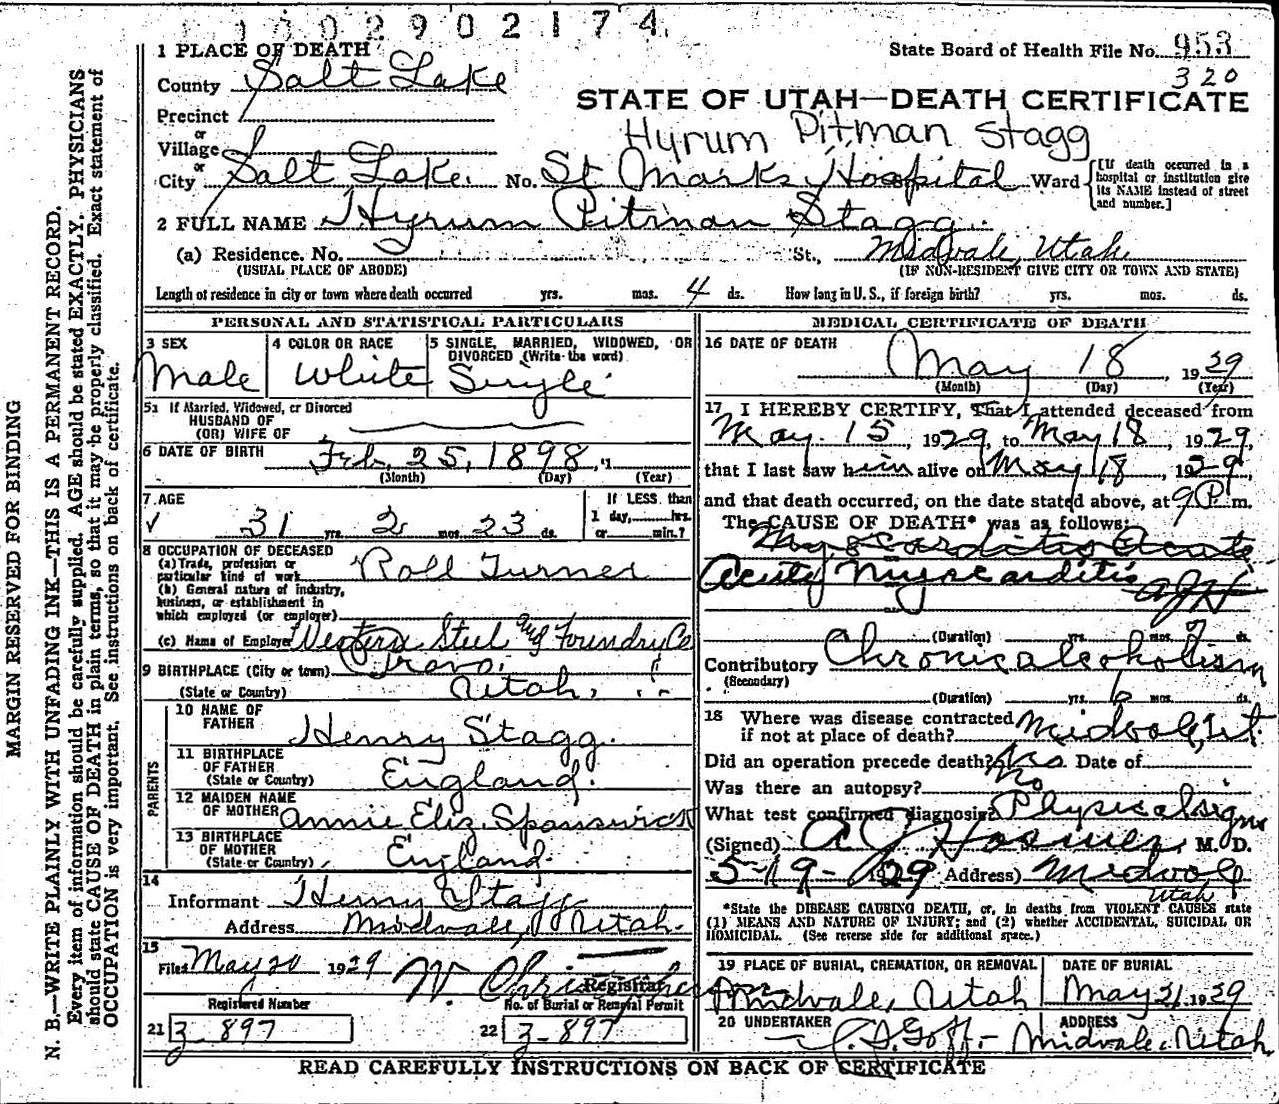 1002902174
1 PLACE OF DEATH
State Board of Health File No. 953
County Salt Lake
320
STATE OF UTAH—DEATH CERTIFICATE
Precinct
or
Hyrum Pitman Stagg
Village
or
City Salt Lake. No. St Marks Hospital Ward [If death occurred in a hospital or institution give its NAME instead of street and number.]
2 FULL NAME Hyrum Pitman Stagg.
(a) Residence. No. St., Midvale, Utah.
(USUAL PLACE OF ABODE) (IF NON-RESIDENT GIVE CITY OR TOWN AND STATE)
Length of residence in city or town where death occurred yrs. mos. 4 ds. How long in U. S., if foreign birth? yrs. mos. ds.
PERSONAL AND STATISTICAL PARTICULARS
3 SEX
Male
4 COLOR OR RACE
White
5 SINGLE, MARRIED, WIDOWED, OR
DIVORCED (Write the word)
Single
5a If Married, Widowed, or Divorced
HUSBAND OF
(OR) WIFE OF
6 DATE OF BIRTH Feb. 25, 1898, 1
(Month) (Day) (Year)
7 AGE
31 yrs. 2 mos. 23 ds.
If LESS than
1 day, hrs.
or min.?
8 OCCUPATION OF DECEASED
(a) Trade, profession or
particular kind of work Roll Turner
(b) General nature of industry,
business, or establishment in
which employed (or employer)
(c) Name of Employer Western Steel and Foundry Co
9 BIRTHPLACE (City or town) Provo.
(State or Country) Utah,
PARENTS
10 NAME OF
FATHER Henry Stagg.
11 BIRTHPLACE
OF FATHER
(State or Country) England.
12 MAIDEN NAME
OF MOTHER Annie Eliz. Spanswick
13 BIRTHPLACE
OF MOTHER
(State or Country) England.
14
Informant Henry Stagg
Address Midvale, Utah.
15
Filed May 20 1929 W. Christopherson
Registrar
Registered Number
21 3-897
No. of Burial or Removal Permit
22 3-897
MEDICAL CERTIFICATE OF DEATH
16 DATE OF DEATH
May 18, 1929
(Month) (Day) (Year)
17 I HEREBY CERTIFY, That I attended deceased from
May. 15, 1929, to May 18, 1929,
that I last saw him alive on May 18, 1929,
and that death occurred, on the date stated above, at 9 P. m.
The CAUSE OF DEATH* was as follows:
Myocarditis Acute
Acute Myocarditis AJH
(Duration) yrs. mos. 7 ds.
Contributory Chronic alcoholism
(Secondary)
(Duration) yrs. 6 mos. ds.
18 Where was disease contracted
if not at place of death? Midvale, Ut.
Did an operation precede death? No Date of
Was there an autopsy? No
What test confirmed diagnosis? Physical signs
(Signed) A J Hosmer, M. D.
5-19-1929 Address) Midvale
Utah
*State the DISEASE CAUSING DEATH, or, in deaths from VIOLENT CAUSES state
(1) MEANS AND NATURE OF INJURY; and (2) whether ACCIDENTAL, SUICIDAL OR
HOMICIDAL. (See reverse side for additional space.)
19 PLACE OF BURIAL, CREMATION, OR REMOVAL
Midvale, Utah
DATE OF BURIAL
May 21, 1929
20 UNDERTAKER
Goff.
ADDRESS
Midvale, Utah
READ CAREFULLY INSTRUCTIONS ON BACK OF CERTIFICATE
MARGIN RESERVED FOR BINDING
N. B.—WRITE PLAINLY WITH UNFADING INK—THIS IS A PERMANENT RECORD.
Every item of information should be carefully supplied. AGE should be stated EXACTLY. PHYSICIANS
should state CAUSE OF DEATH in plain terms, so that it may be properly classified. Exact statement of
OCCUPATION is very important. See instructions on back of certificate.